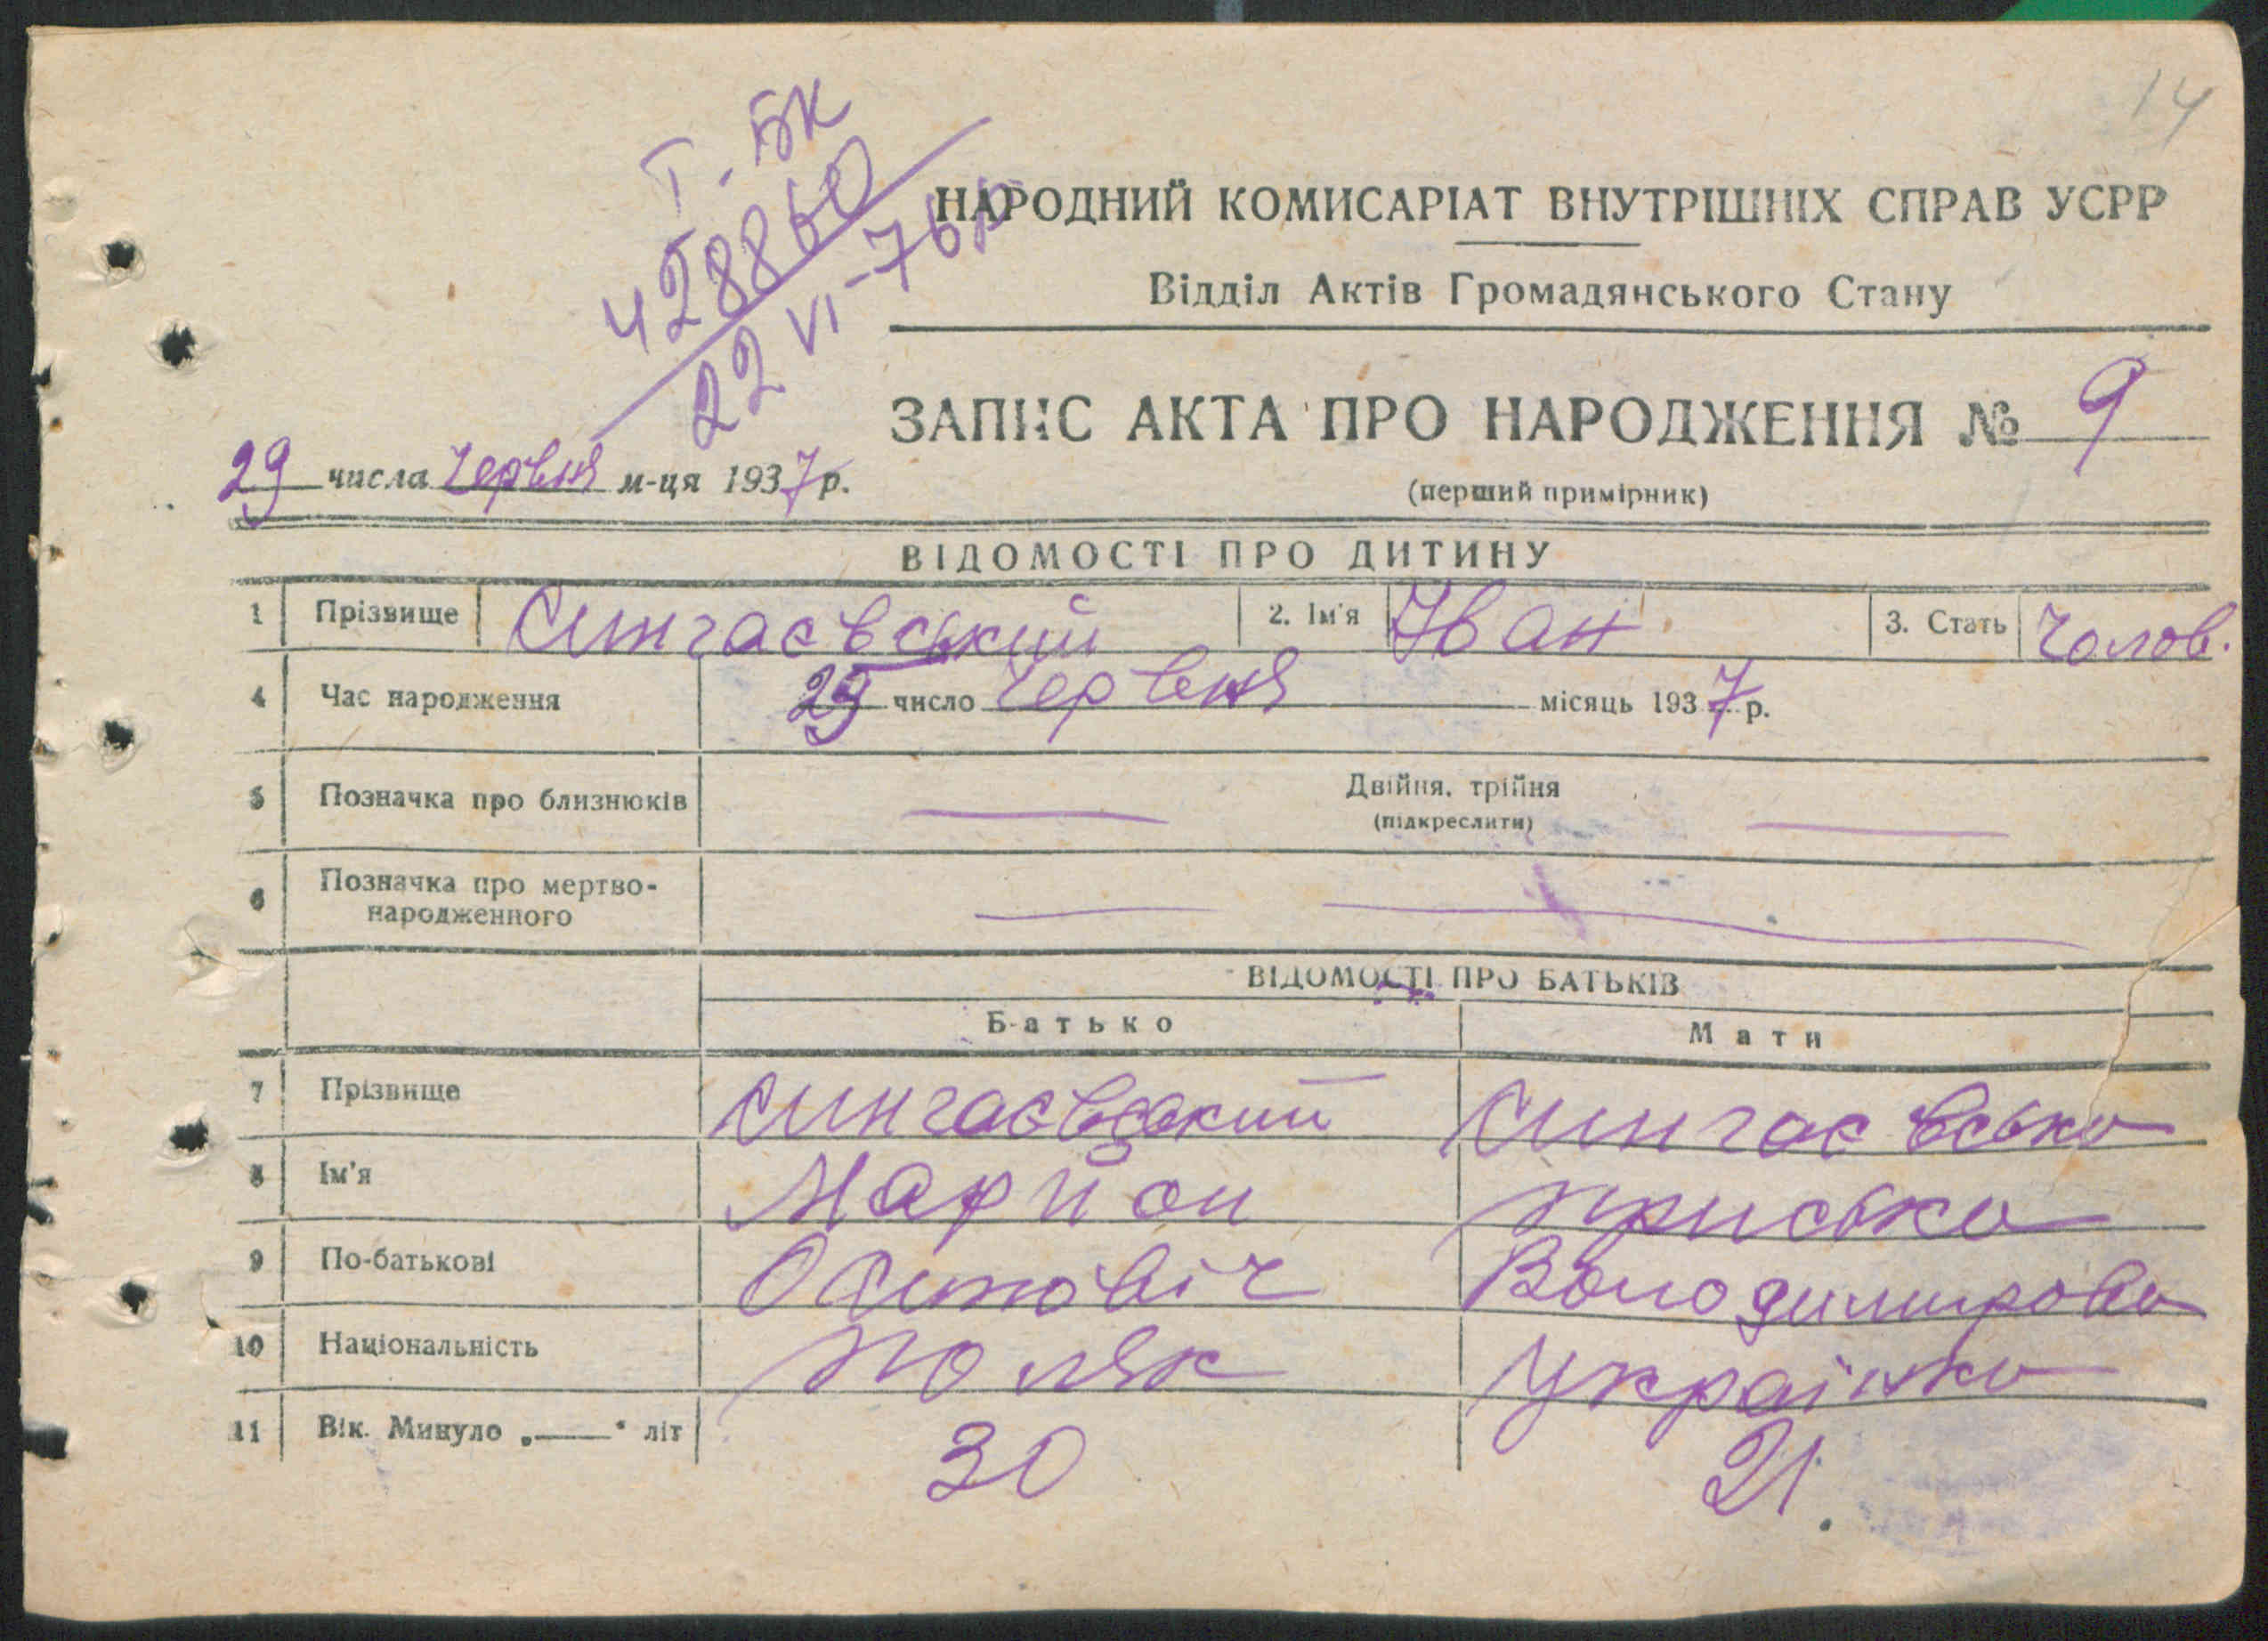 14
І-БК
428860
22 VI-76р
НАРОДНИЙ КОМИСАРІАТ ВНУТРІШНІХ СПРАВ УСРР
Відділ Актів Громадянського Стану
ЗАПИС АКТА ПРО НАРОДЖЕННЯ № 9
29 числа Червня м-ця 1937 р.
(перший примірник)
ВІДОМОСТІ ПРО ДИТИНУ
1 Прізвище Сингаєвський 2. Ім'я Іван 3. Стать Чолов.
4 Час народження 29 число Червня місяць 1937 р.
5 Позначка про близнюків Двійня, трійня
(підкреслити)
6 Позначка про мертво-
народженного
ВІДОМОСТІ ПРО БАТЬКІВ
Батько Мати
7 Прізвище Сингаєвський Сингаєвська
8 Ім'я Марйон Приська
9 По-батькові Осипович Володимирова
10 Національність Поляк Українка
11 Вік. Минуло „—" літ 30 21.